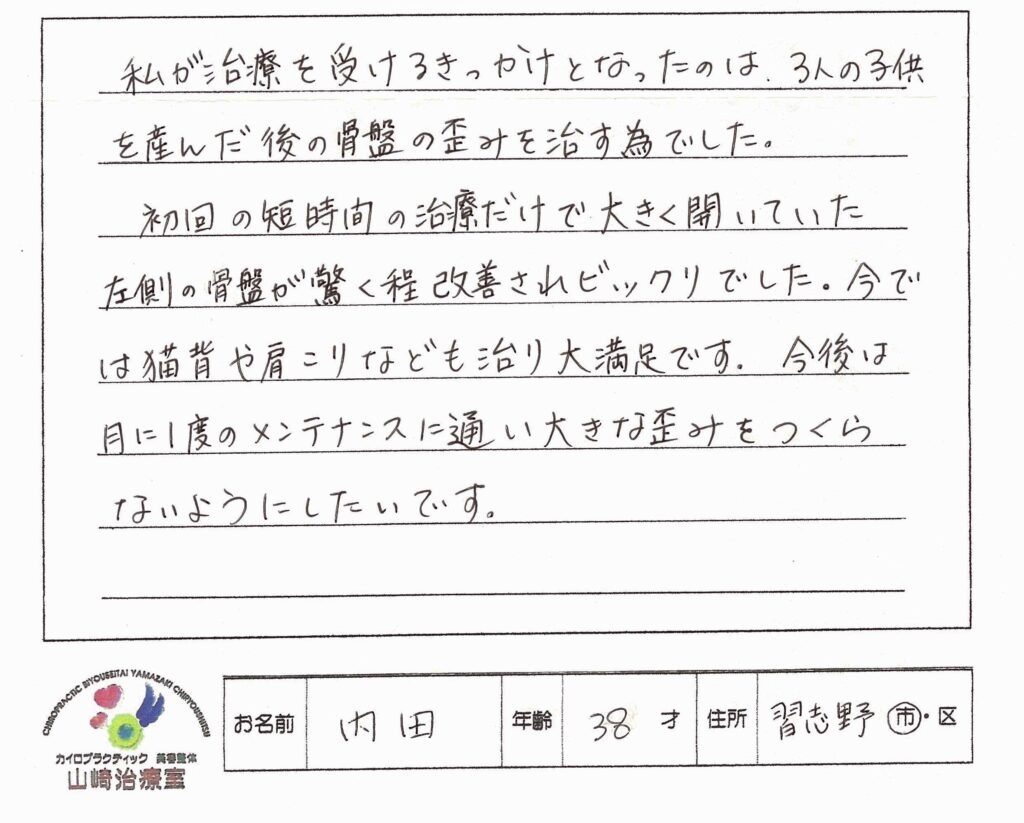 私が治療を受けるきっかけとなったのは、3人の子供
を産んだ後の骨盤の歪みを治す為でした。
初回の短時間の治療だけで大きく開いていた
左側の骨盤が驚く程改善されビックリでした。今で
は猫背や肩こりなども治り大満足です。今後は
月に1度のメンテナンスに通い大きな歪みをつくら
ないようにしたいです。
CHIROPRACTIC BIYOUSEITAI YAMAZAKI CHIRYOUSHITSU
カイロプラクティック 美容整体
山崎治療室
お名前 内田 年齢 38 才 住所 習志野 市・区